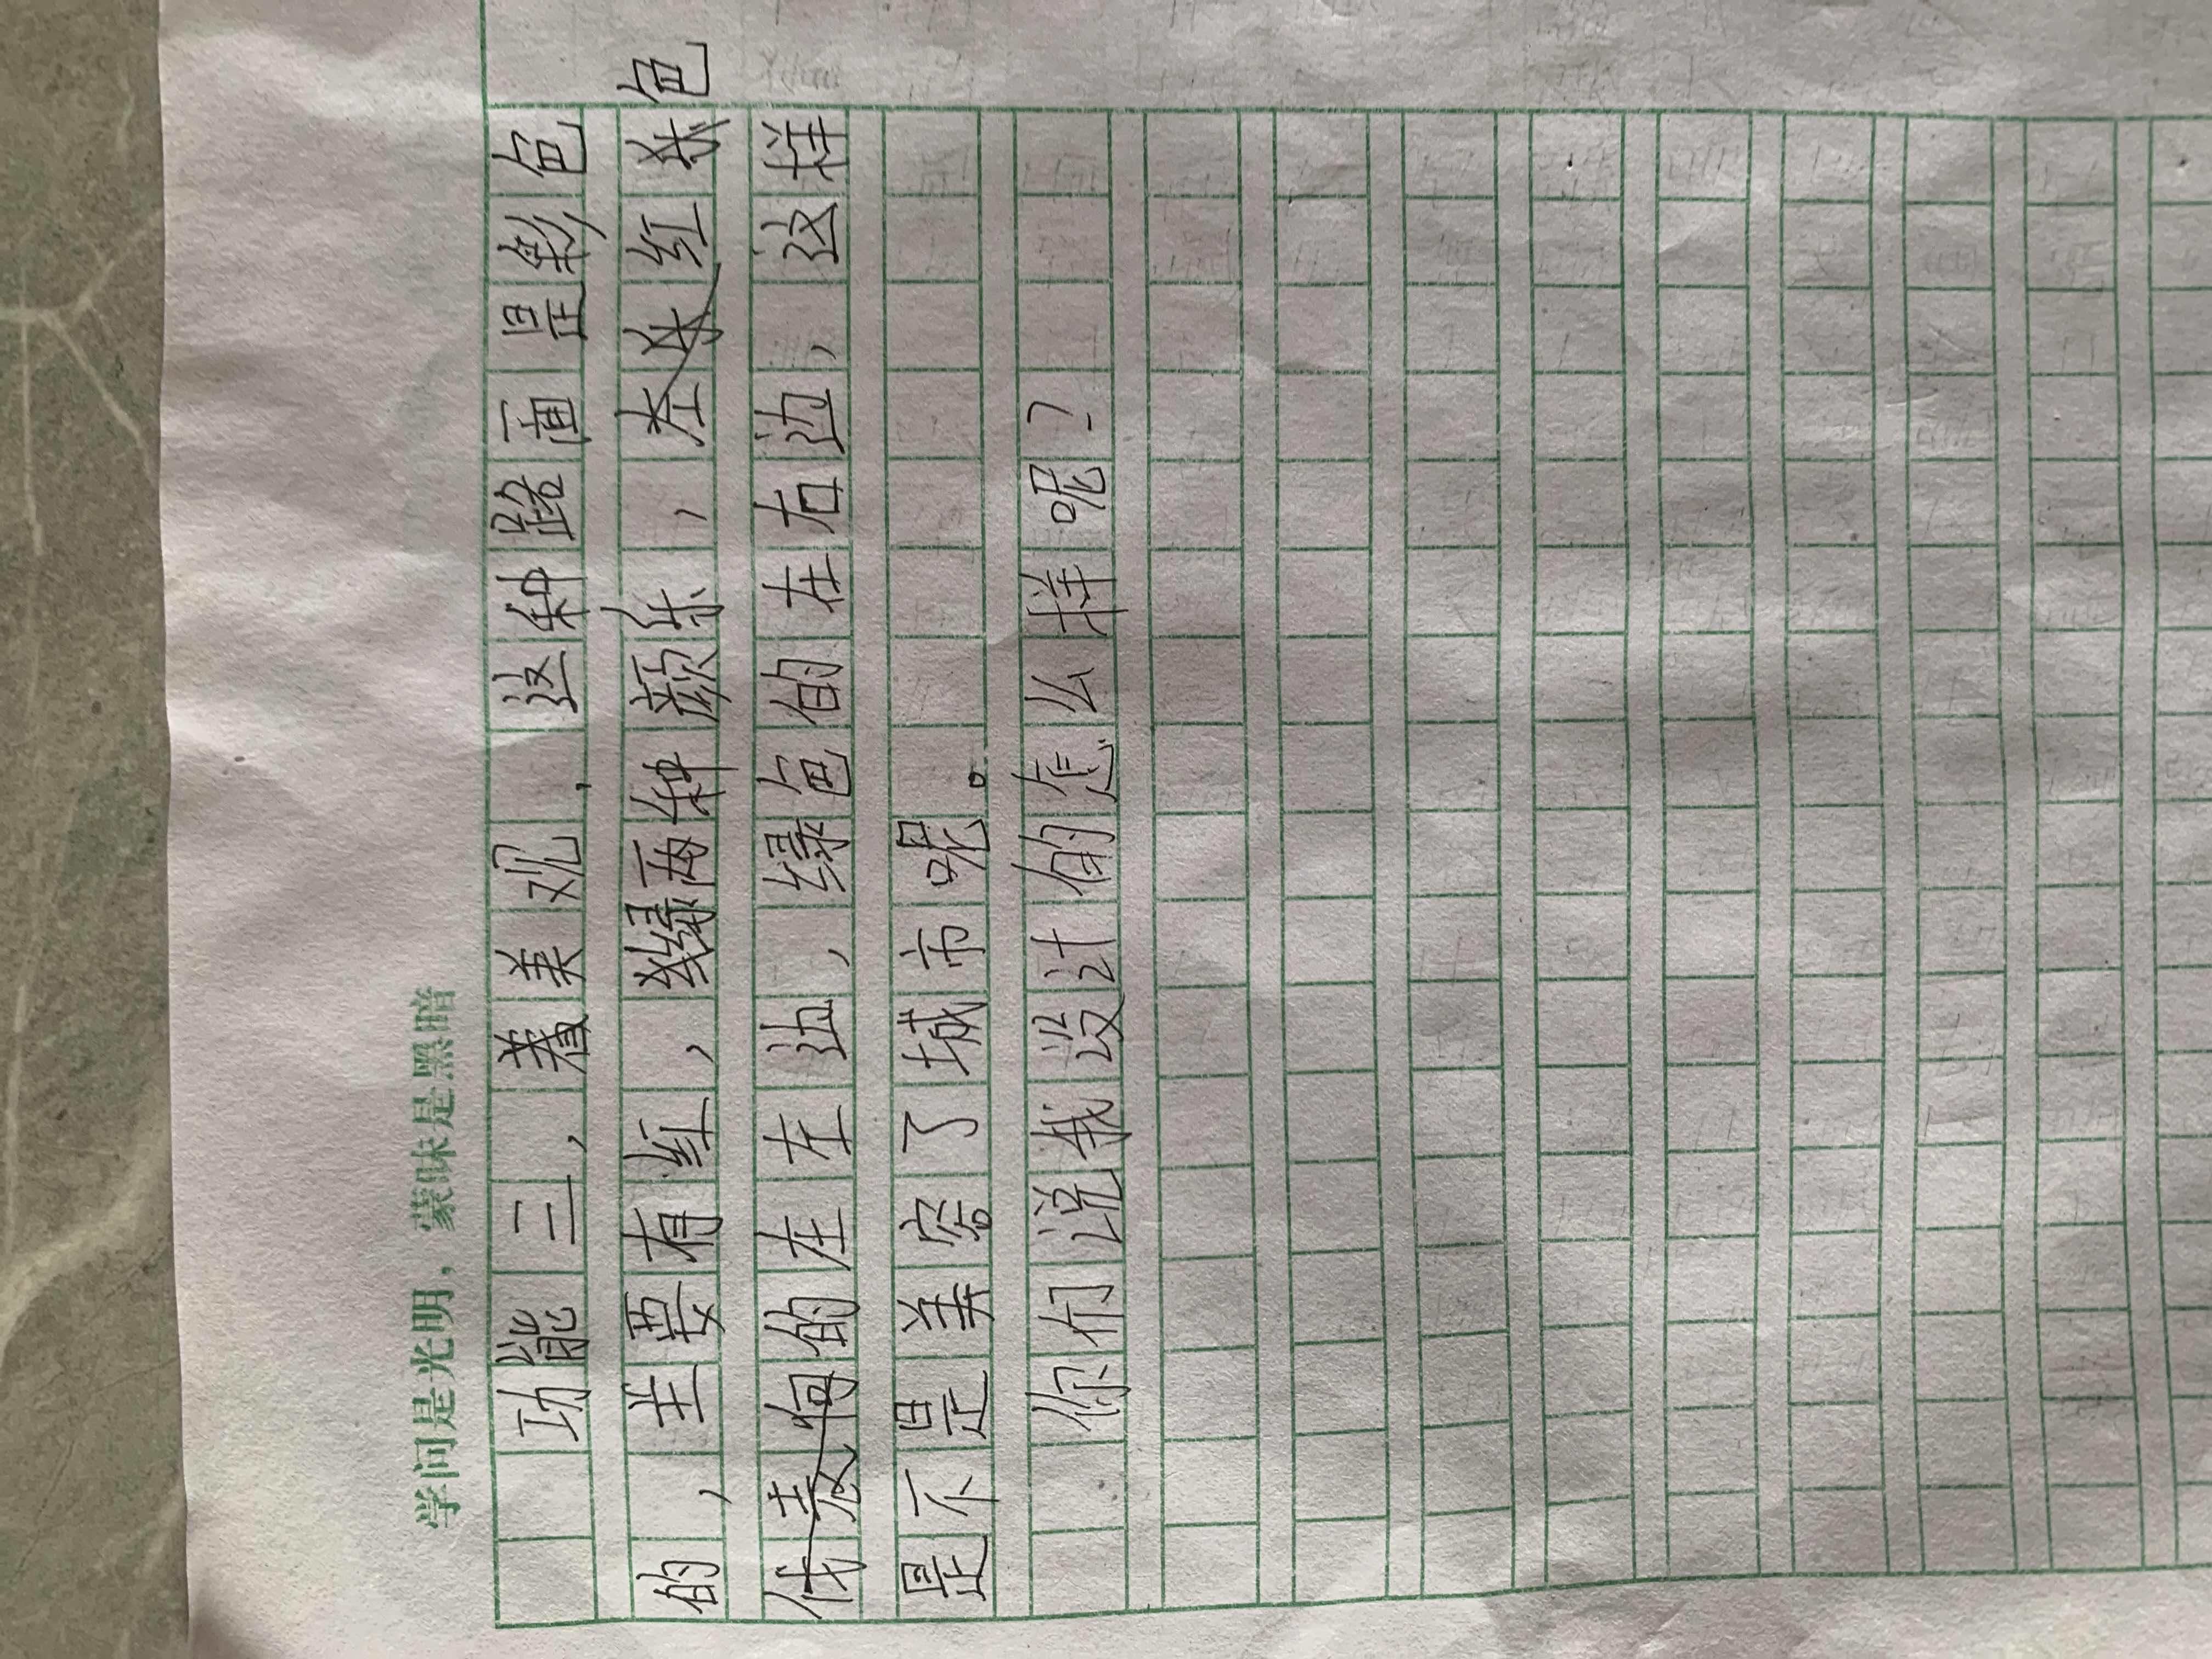 学问是光明，蒙昧是黑暗
功能三，着美观，这种路面是彩色
的，主要有红，绿两种颜乐，红色
的在左边，绿色的在右边，这样
是不是美容了城市呢。
你们说我设计的怎么样呢？